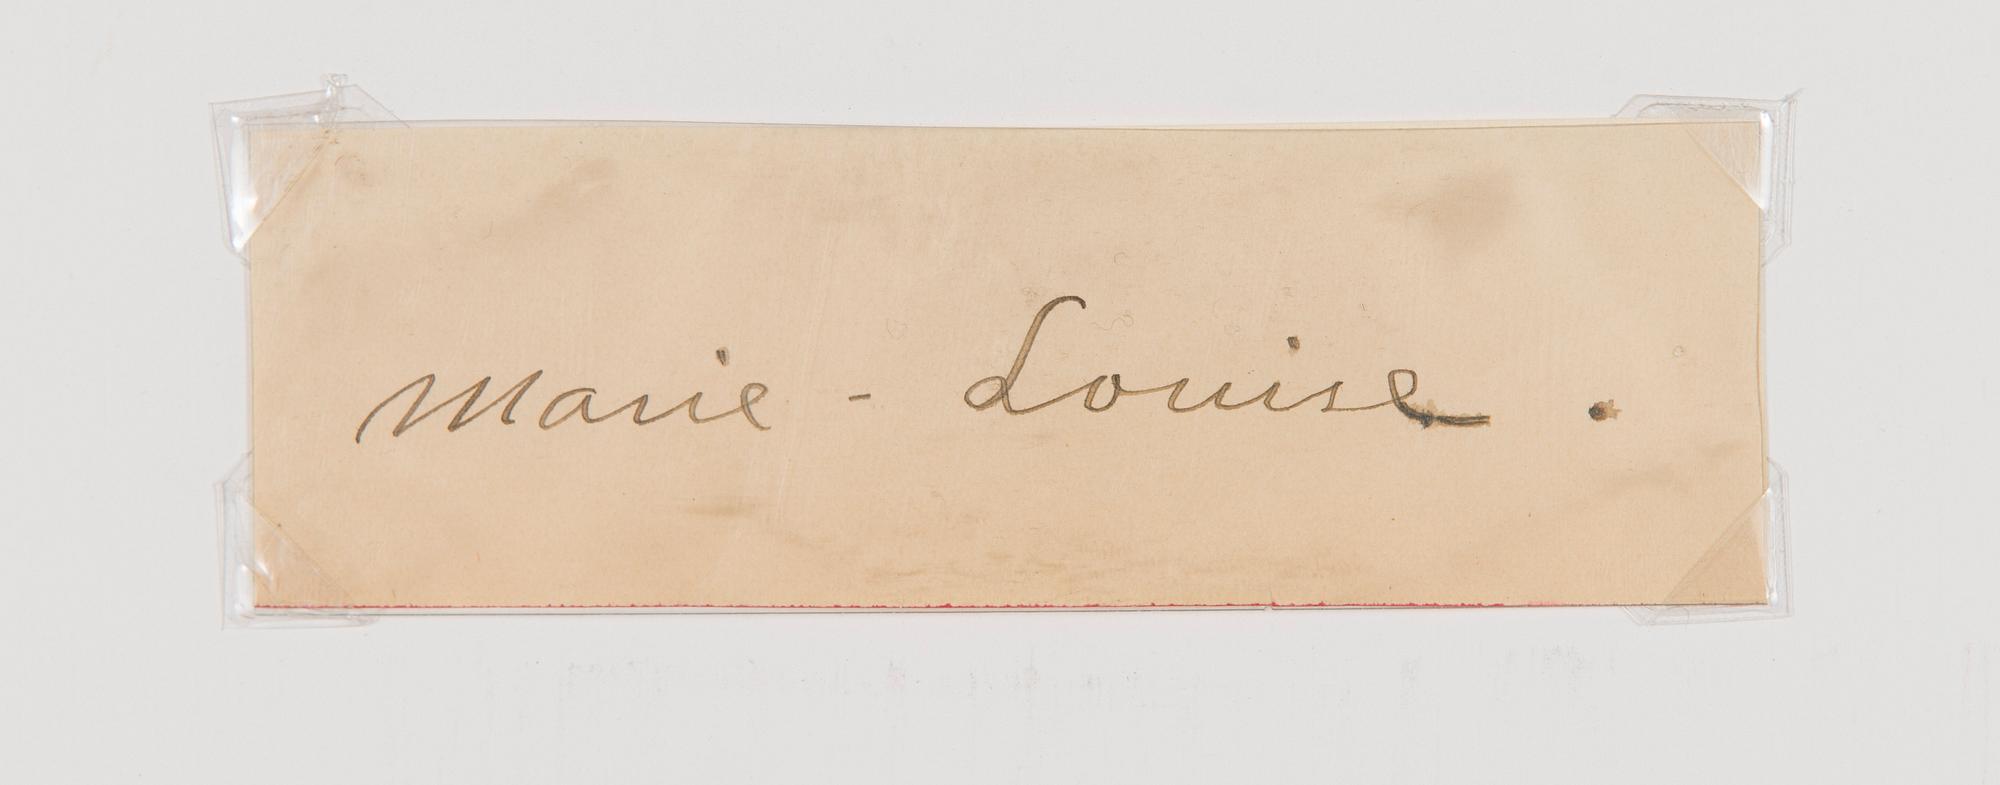 Marie - Louise .